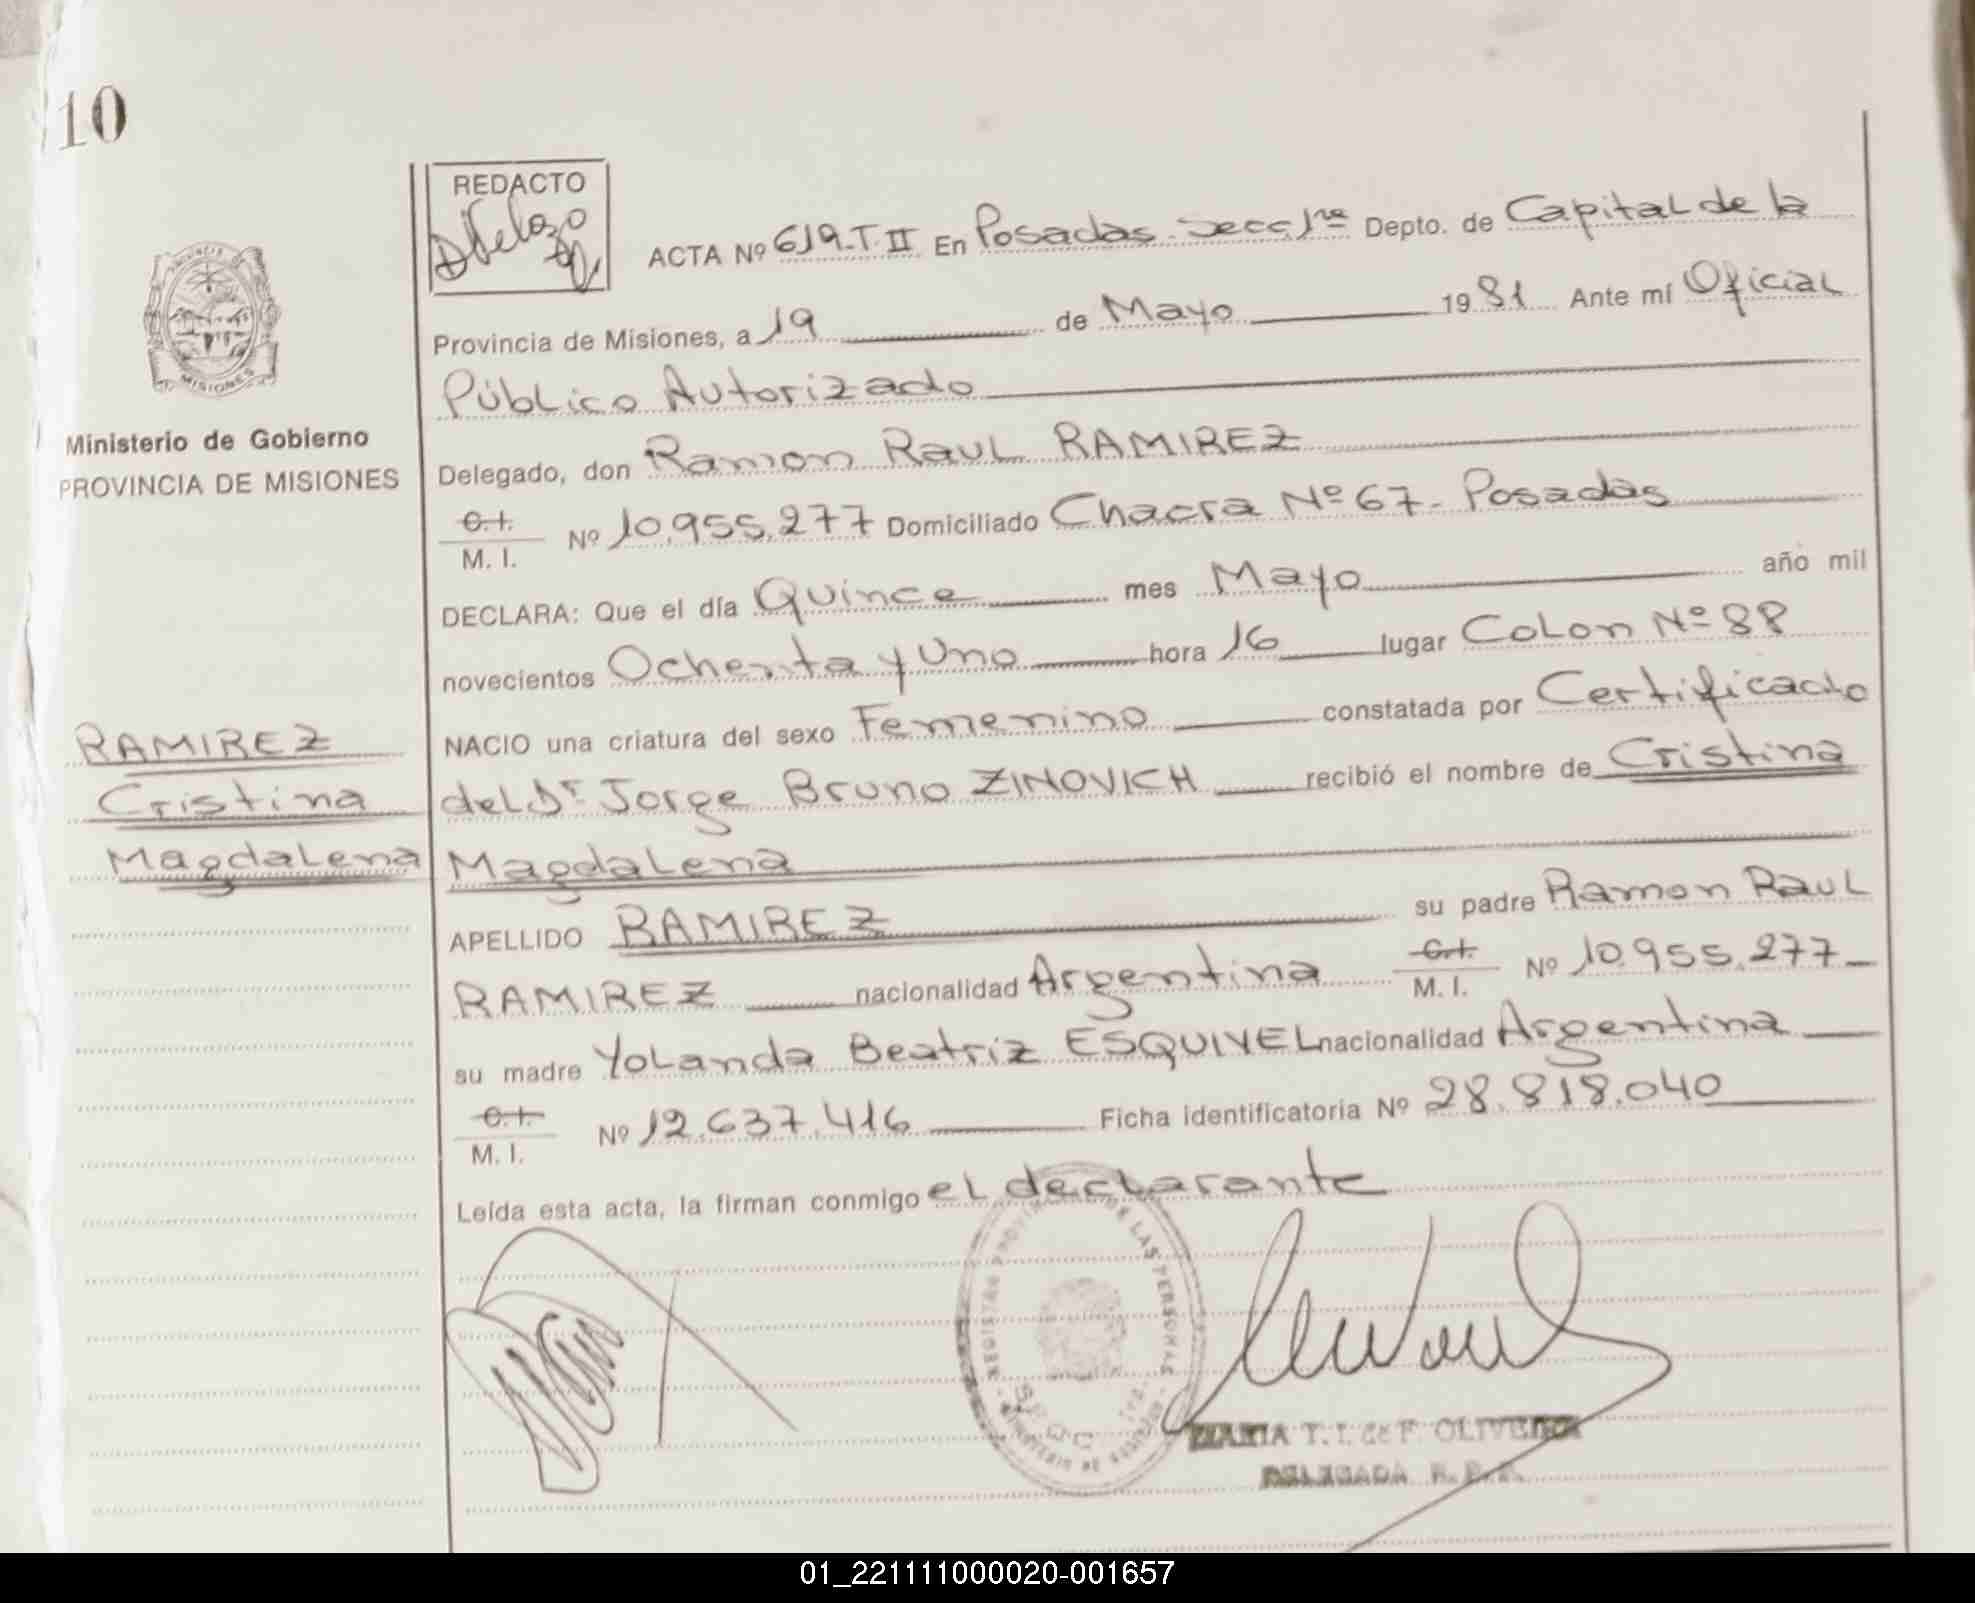 10
REDACTO
ACTA Nº 619-T.II En Posadas-Secc 1ra Depto. de Capital de la
Provincia de Misiones, a 19 de Mayo 1981 Ante mí Oficial
Público Autorizado
Delegado, don Ramon Raul RAMIREZ
C.I. M. I. Nº 10.955.277 Domiciliado Chacra Nº 67- Posadas
DECLARA: Que el día Quince mes Mayo año mil
novecientos Ochenta y Uno hora 16 lugar Colon Nº 88
NACIO una criatura del sexo Femenino constatada por Certificado
del Dr Jorge Bruno ZINOVICH recibió el nombre de Cristina
Magdalena
APELLIDO RAMIREZ su padre Ramon Raul
RAMIREZ nacionalidad Argentina C.I. M. I. Nº 10.955.277
su madre Yolanda Beatriz ESQUIVEL nacionalidad Argentina
C.I. M. I. Nº 12.637.416 Ficha identificatoria Nº 28.818.040
Leída esta acta, la firman conmigo el declarante
PROVINCIA
MISIONES
Ministerio de Gobierno
PROVINCIA DE MISIONES
RAMIREZ
Cristina
Magdalena
REGISTRO PROVINCIAL DE LAS PERSONAS
MINISTERIO DE GOBIERNO
MARIA T. I. de F. OLIVEIRA
DELEGADA R. P. P.
01_221111000020-001657